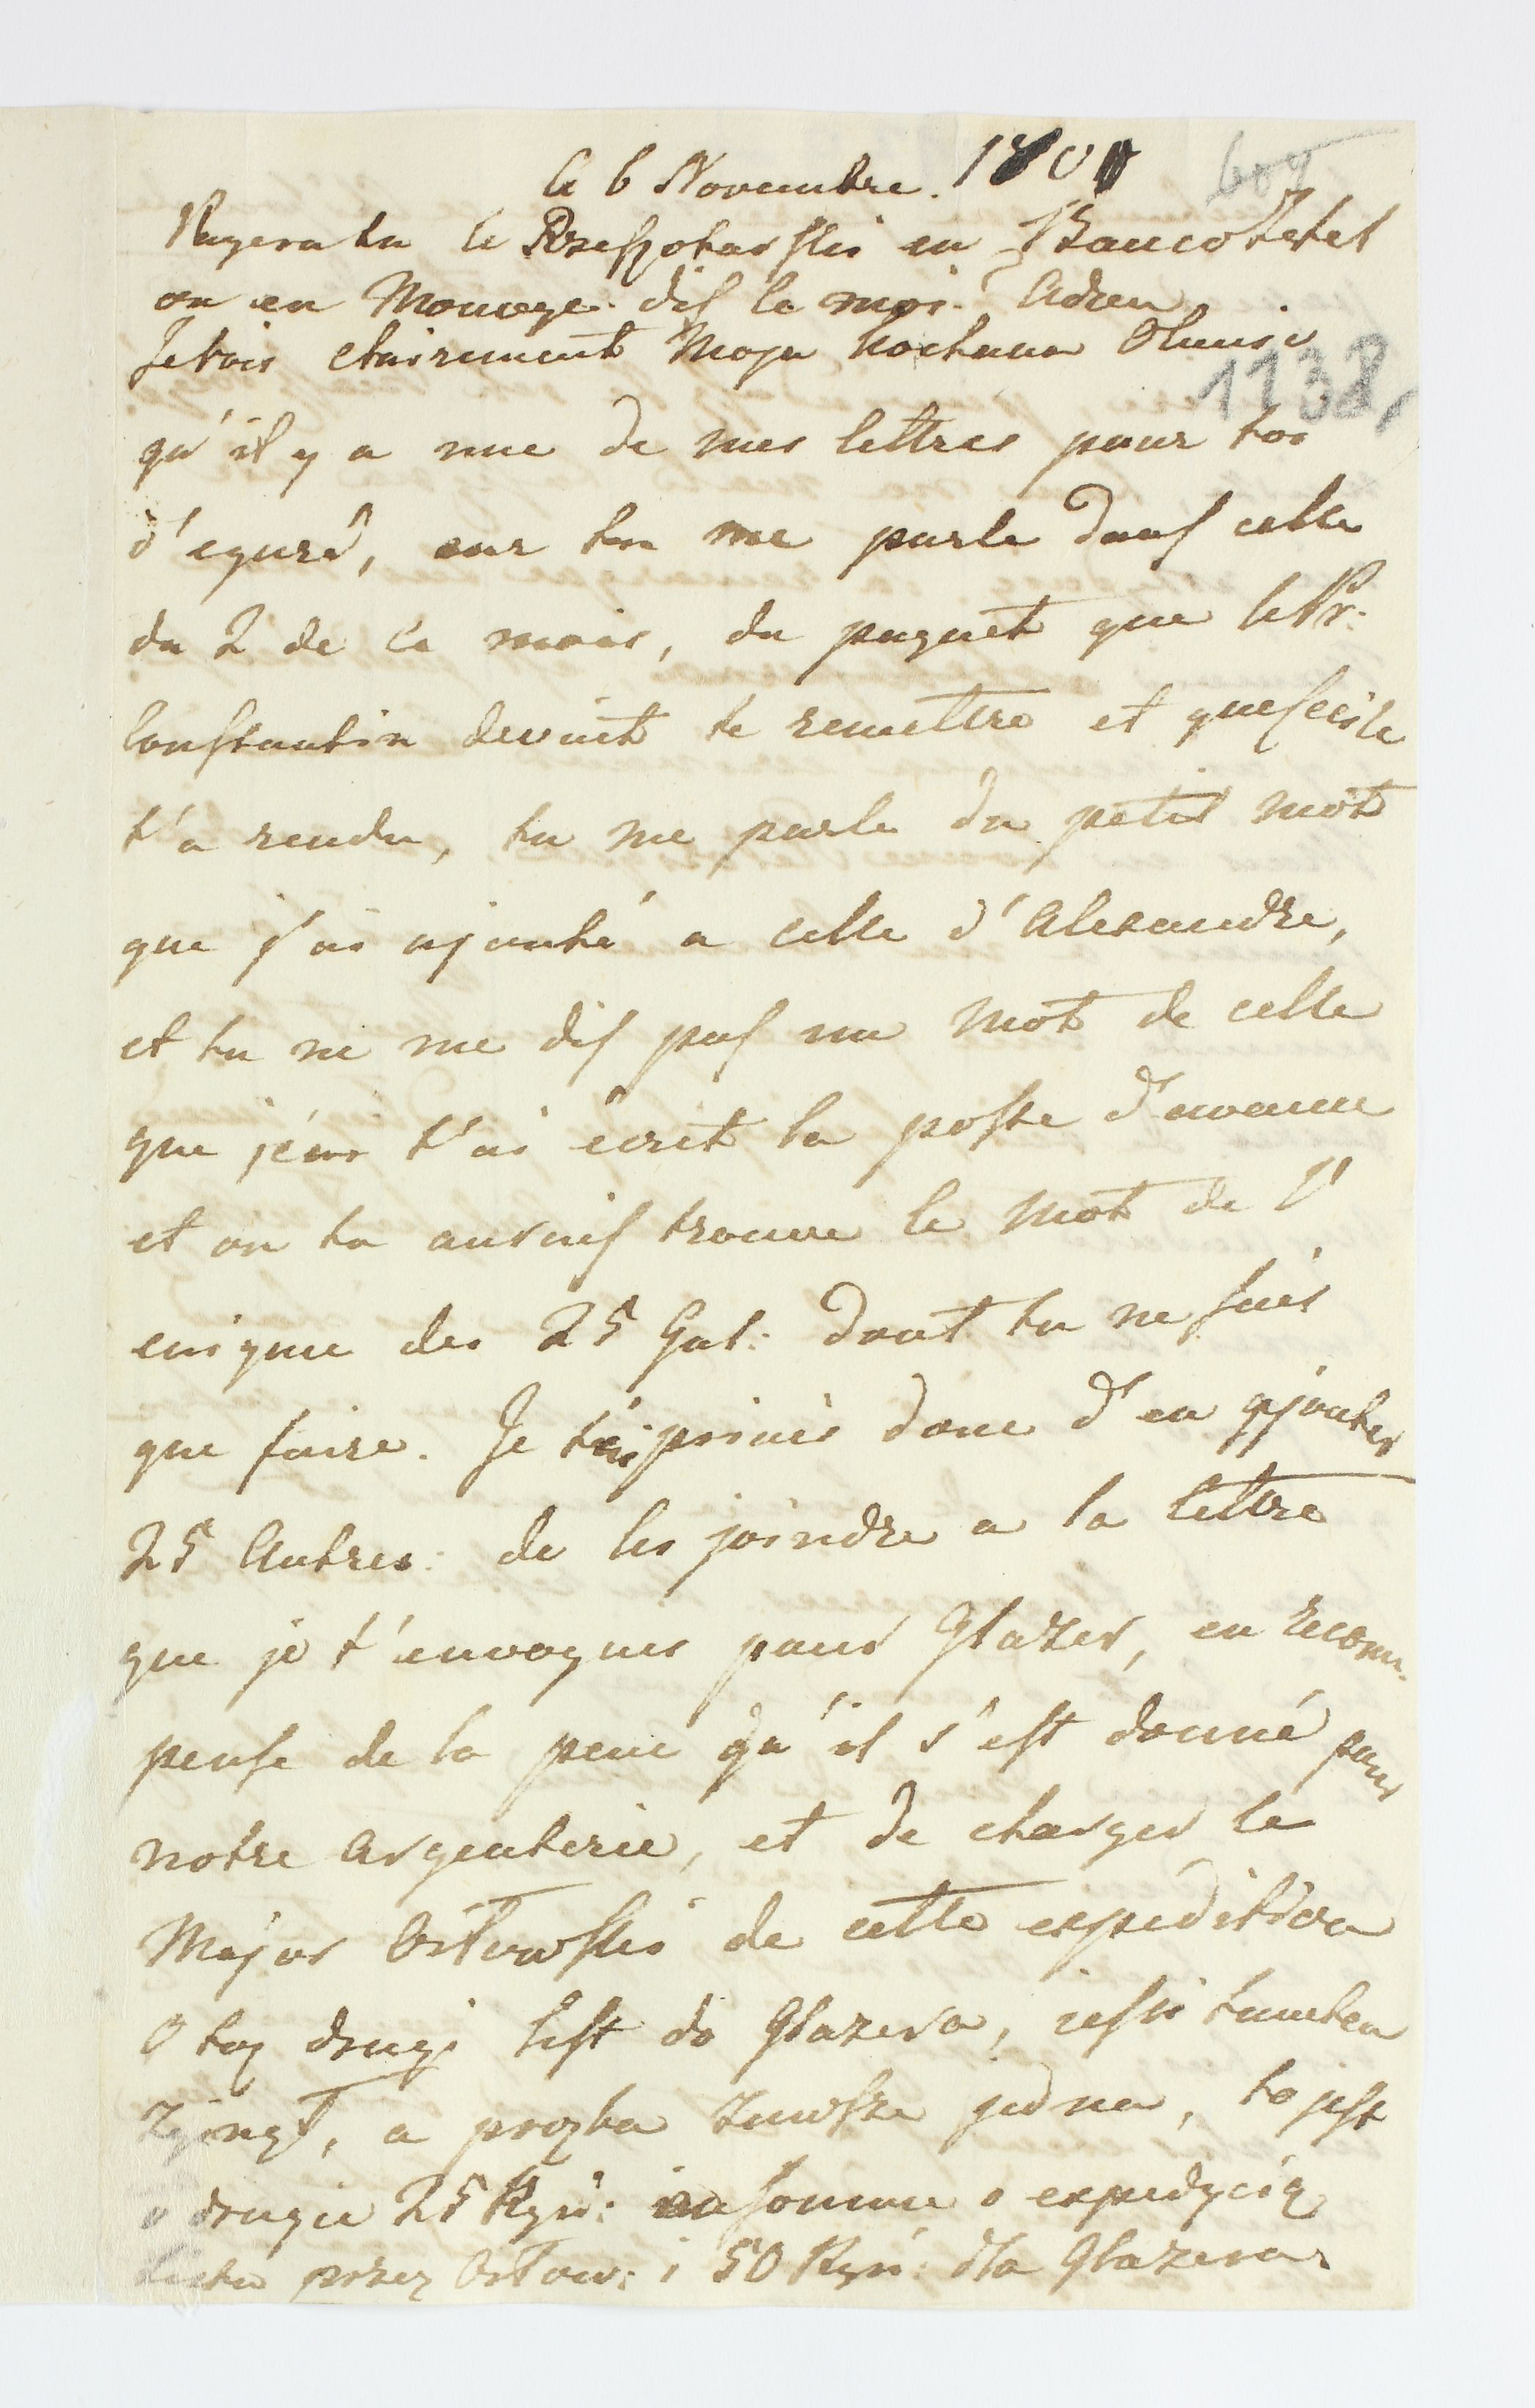 le 6 Novembre. 1800
609
Payera tu le Rzeszotarski en Bancozetel
ou en Monoye. dis le moi. Adieu
Je vois clairement Moja kochana Olesiu
1138,
qu'il y a une de mes lettres pour toi
d'egaré, car tu me parle dans celle
du 2 de ce mois, du paquet que le Pr:
Constantin devait te remettre et que Cecile
t'a rendu, tu me parle du petit mot
que j'ai ajouté a celle d'Alexandre,
et tu ne me dis pas un mot de celle
que je t'ai ecrit la poste d'avance
et ou tu aurais trouve le mot de l'
enigme des 25 Gul: dont tu ne sais
que faire. Je te priais donc d'en ajouter
25 Autres: de les joindre a la lettre
que je t'envoyais pour Glazer, en recom-
pense de la peine qu'il s'est donné pour
notre Argenterie, et de charger le
Major Orłowski de cette expedition
Otoz drugi list do Glazera, jesli tamten
zginął, a prozba zawsze jedna, to jest
o drugie 25 Ryń: in somma o expedycią
listu przez Orłow: i 50 Ryń: dla Glazera